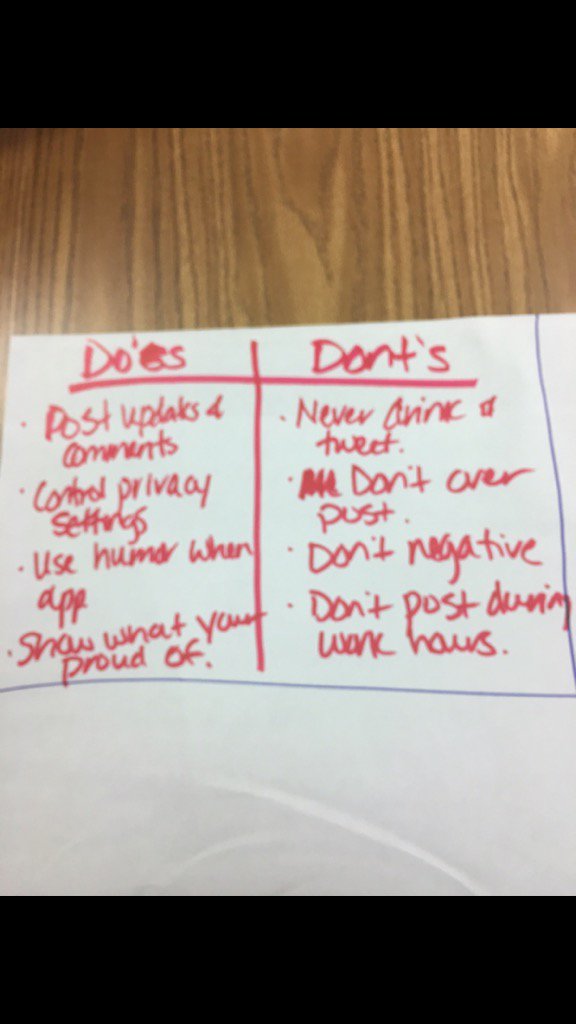 Do's
Post updates &
comments
Control privacy
settings
Use humor when
app
Show what your
proud of.
Dont's
Never drink &
tweet.
Don't over
post.
Don't negative
Don't post during
work hours.